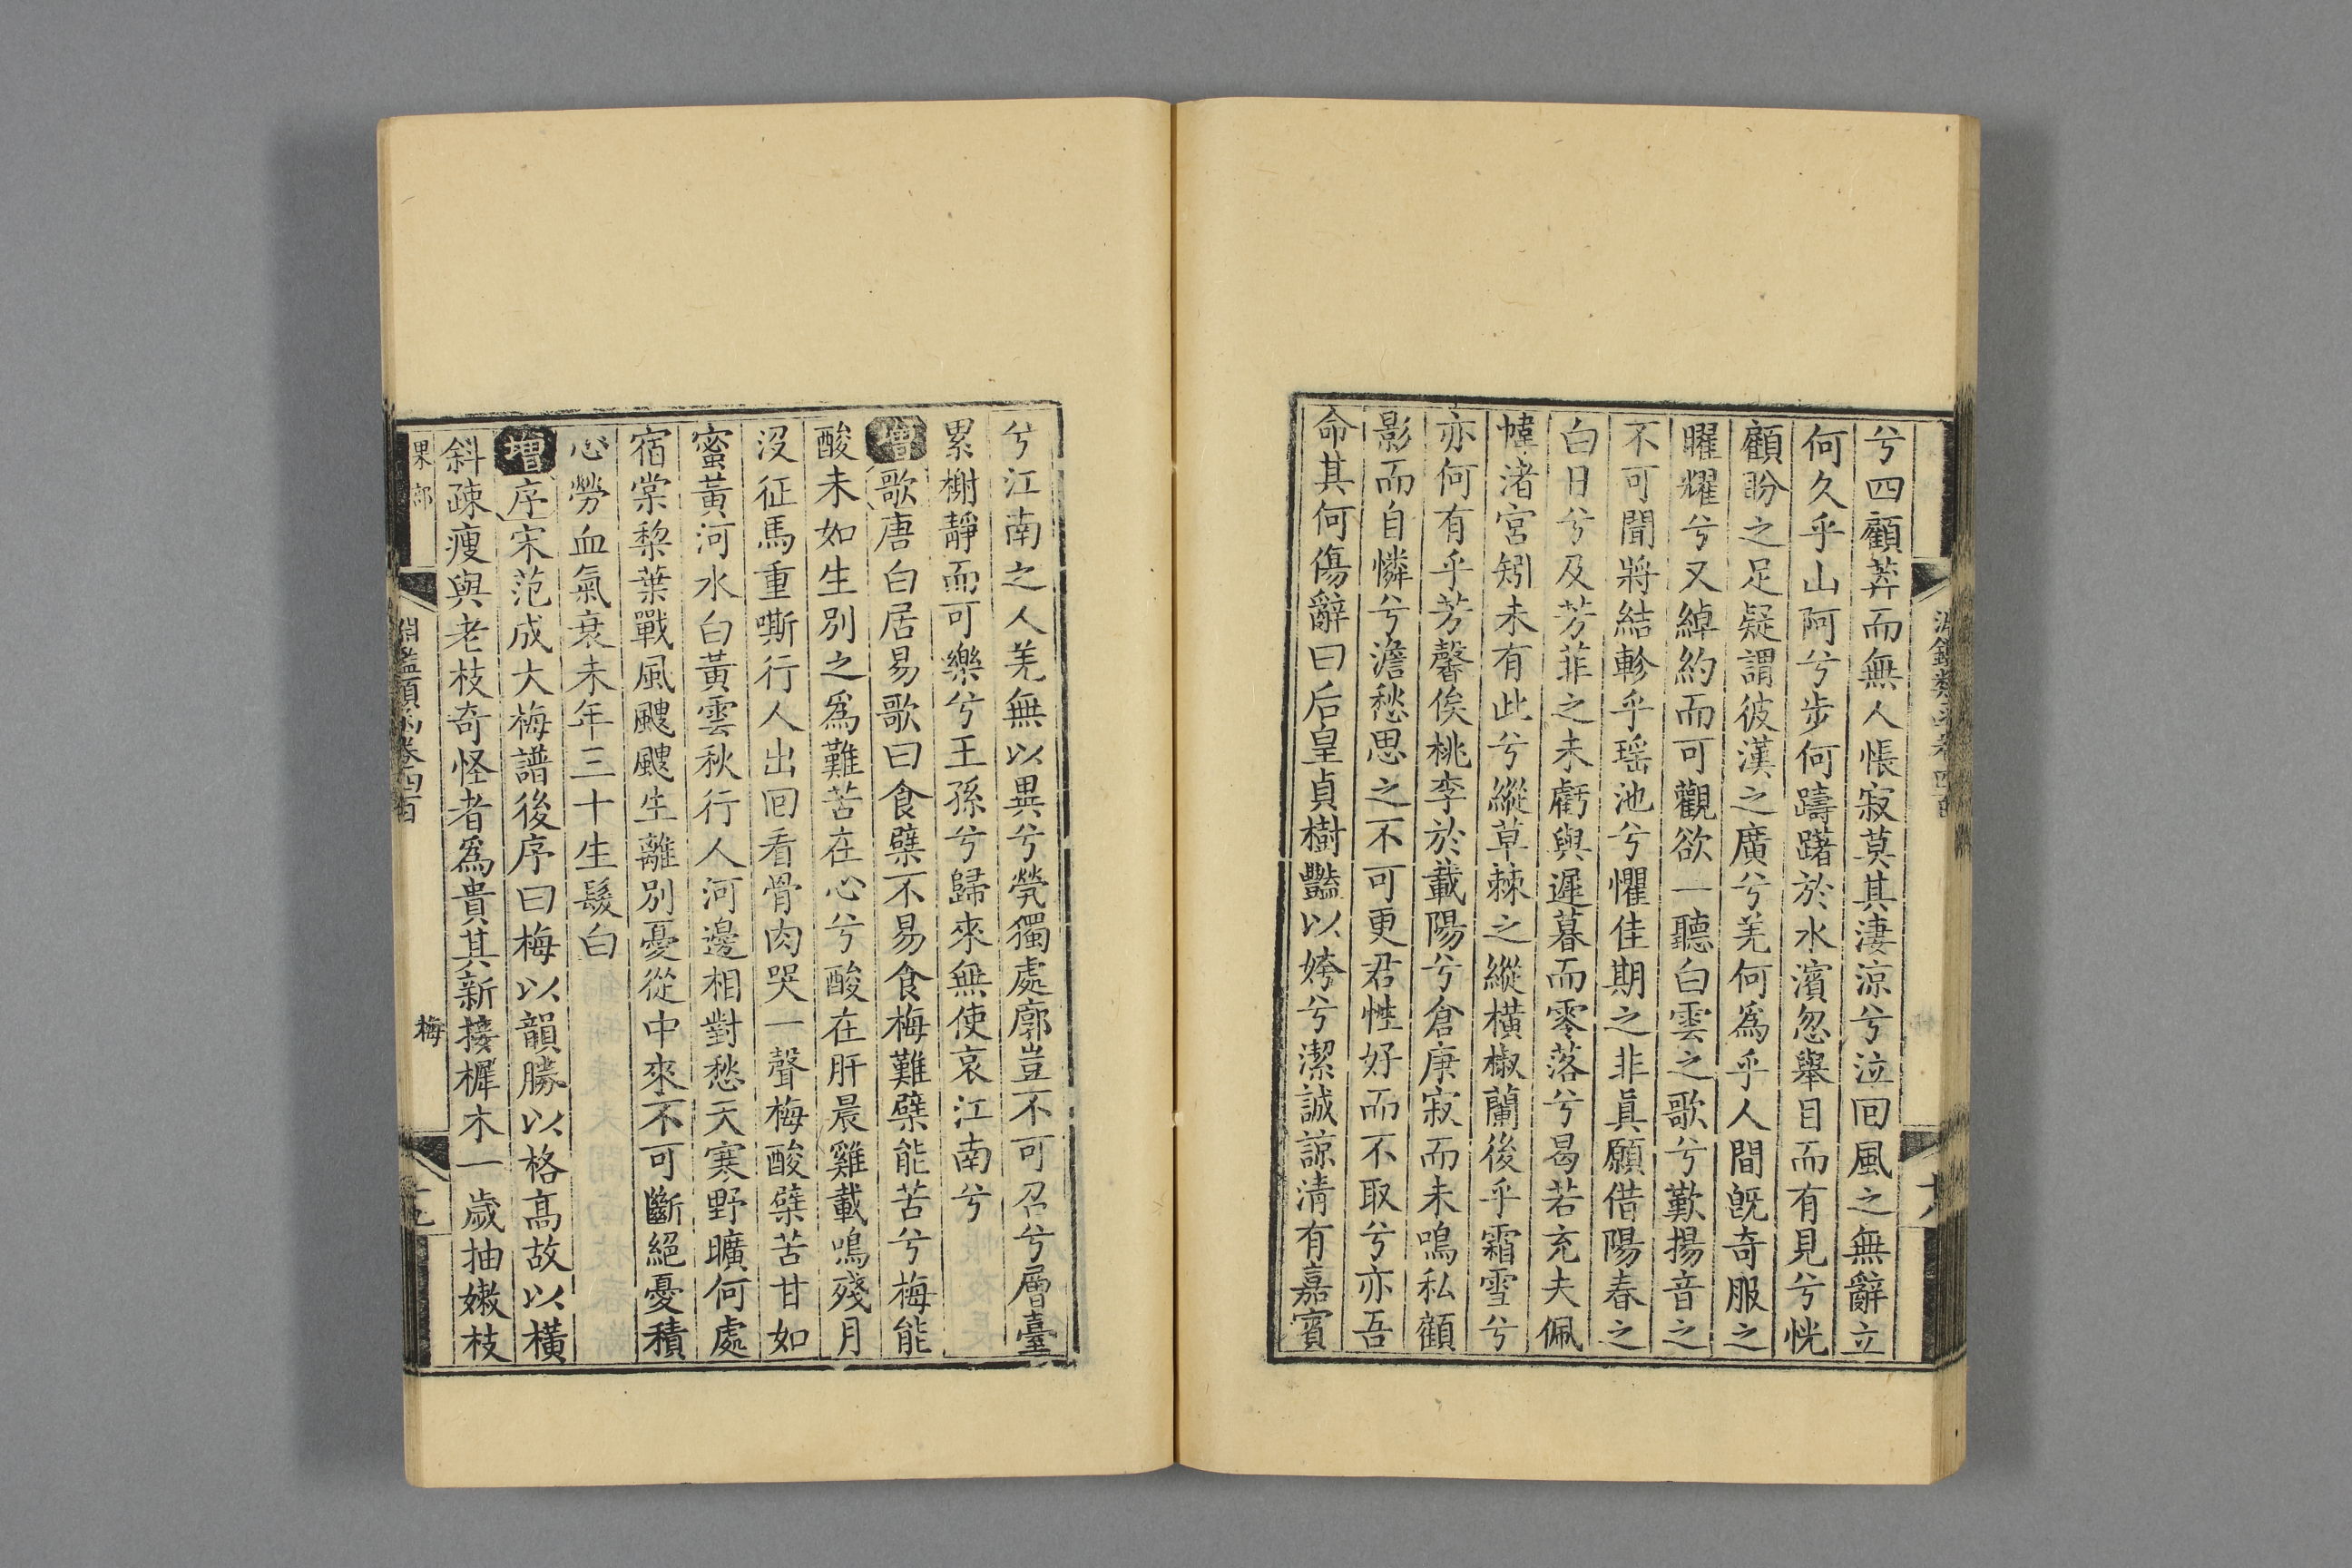 兮四顧莽而無人悵寂莫其淒涼兮泣囘風之無辭立
何久乎山阿兮步何躊躇於水濱忽舉目而有見兮恍
顧盼之足疑謂彼漢之廣兮羌何爲乎人間旣奇服之
曜耀兮又綽約而可觀欲一聽白雲之歌兮歎揚音之
不可聞將結軫乎瑤池兮懼佳期之非眞願借陽春之
白日兮及芳菲之未虧與遲暮而零落兮曷若充夫佩
幃渚宮矧未有此兮縱草棘之縱橫椒蘭後乎霜雪兮
亦何有乎芳馨俟桃李於載陽兮倉庚寂而未鳴私顧
影而自憐兮澹愁思之不可更君性好而不取兮亦吾
命其何傷辭曰后皇貞樹豔以姱兮潔誠諒淸有嘉賓
兮江南之人羌無以異兮煢獨處廓豈不可召兮層臺
累榭靜而可樂兮王孫兮歸來無使哀江南兮
增歌唐白居易歌曰食檗不易食梅難檗能苦兮梅能
酸未如生別之爲難苦在心兮酸在肝晨雞載鳴殘月
沒征馬重嘶行人出囘看骨肉哭一聲梅酸檗苦甘如
蜜黃河水白黃雲秋行人河邊相對愁天寒野曠何處
宿棠黎葉戰風颼颼生離別憂從中來不可斷絕憂積
心勞血氣衰未年三十生髮白
增序宋范成大梅譜後序曰梅以韻勝以格高故以橫
斜疎瘦與老枝奇怪者爲貴其新接穉木一歲抽嫩枝
果部
淵鑑類函卷四百
梅